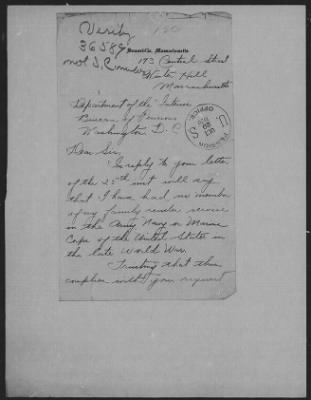 Verify
36589
not S, C number
Somerville, Massachusetts
173 Central Street
Winter Hill
Massachusetts
Department of the Interior
Bureau of Pensions
Washington D. C.
Dear Sir,
In reply to your letter
of the 25th inst will say
that I have had no member
of my family render service
in the Army Navy or Marine
Corps of the United States in
the late World War.
Trusting that this
complies with your request